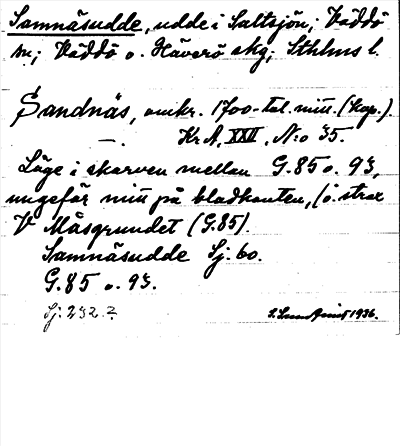 Samnäsudde, udde i Saltsjön; Väddö
sn; Väddö o. Häverö skg; Sthlms l.
Sandnäs, omkr. 1700-tal. mitt. (kop.).
—. Kr A, XXII, N:o 35.
Läge i skarven mellan G.85 o. 93,
ungefär mitt på bladkanten, (ö. strax
V Måsgrundet (G.85).
Samnäsudde Sj. 60.
G.85 o. 93.
Sj. 232.2
1936.